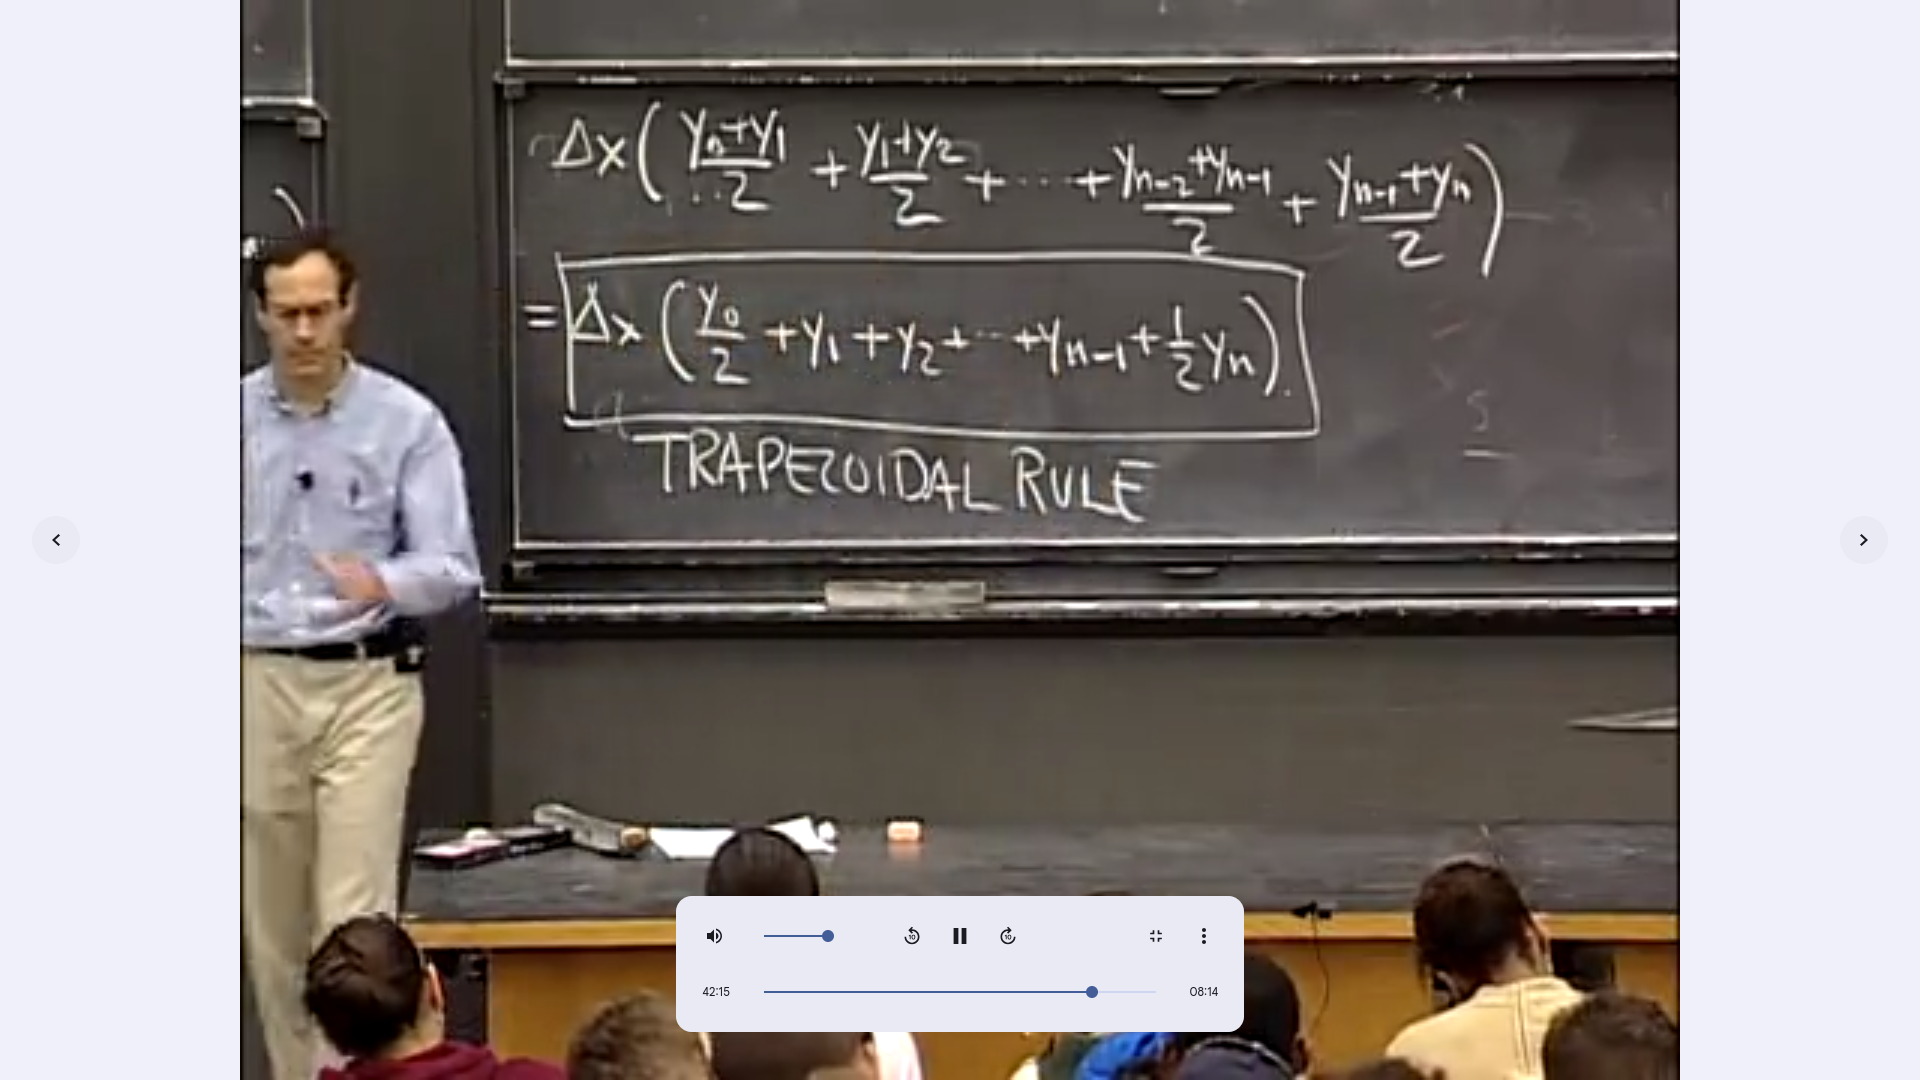 Δx( (y₀+y₁)/2 + (y₁+y₂)/2 + ··· + (yₙ₋₂+yₙ₋₁)/2 + (yₙ₋₁+yₙ)/2 )
= Δx( y₀/2 + y₁ + y₂ + ··· + yₙ₋₁ + 1/2 yₙ ).
TRAPEZOIDAL RULE
10
10
42:15
08:14